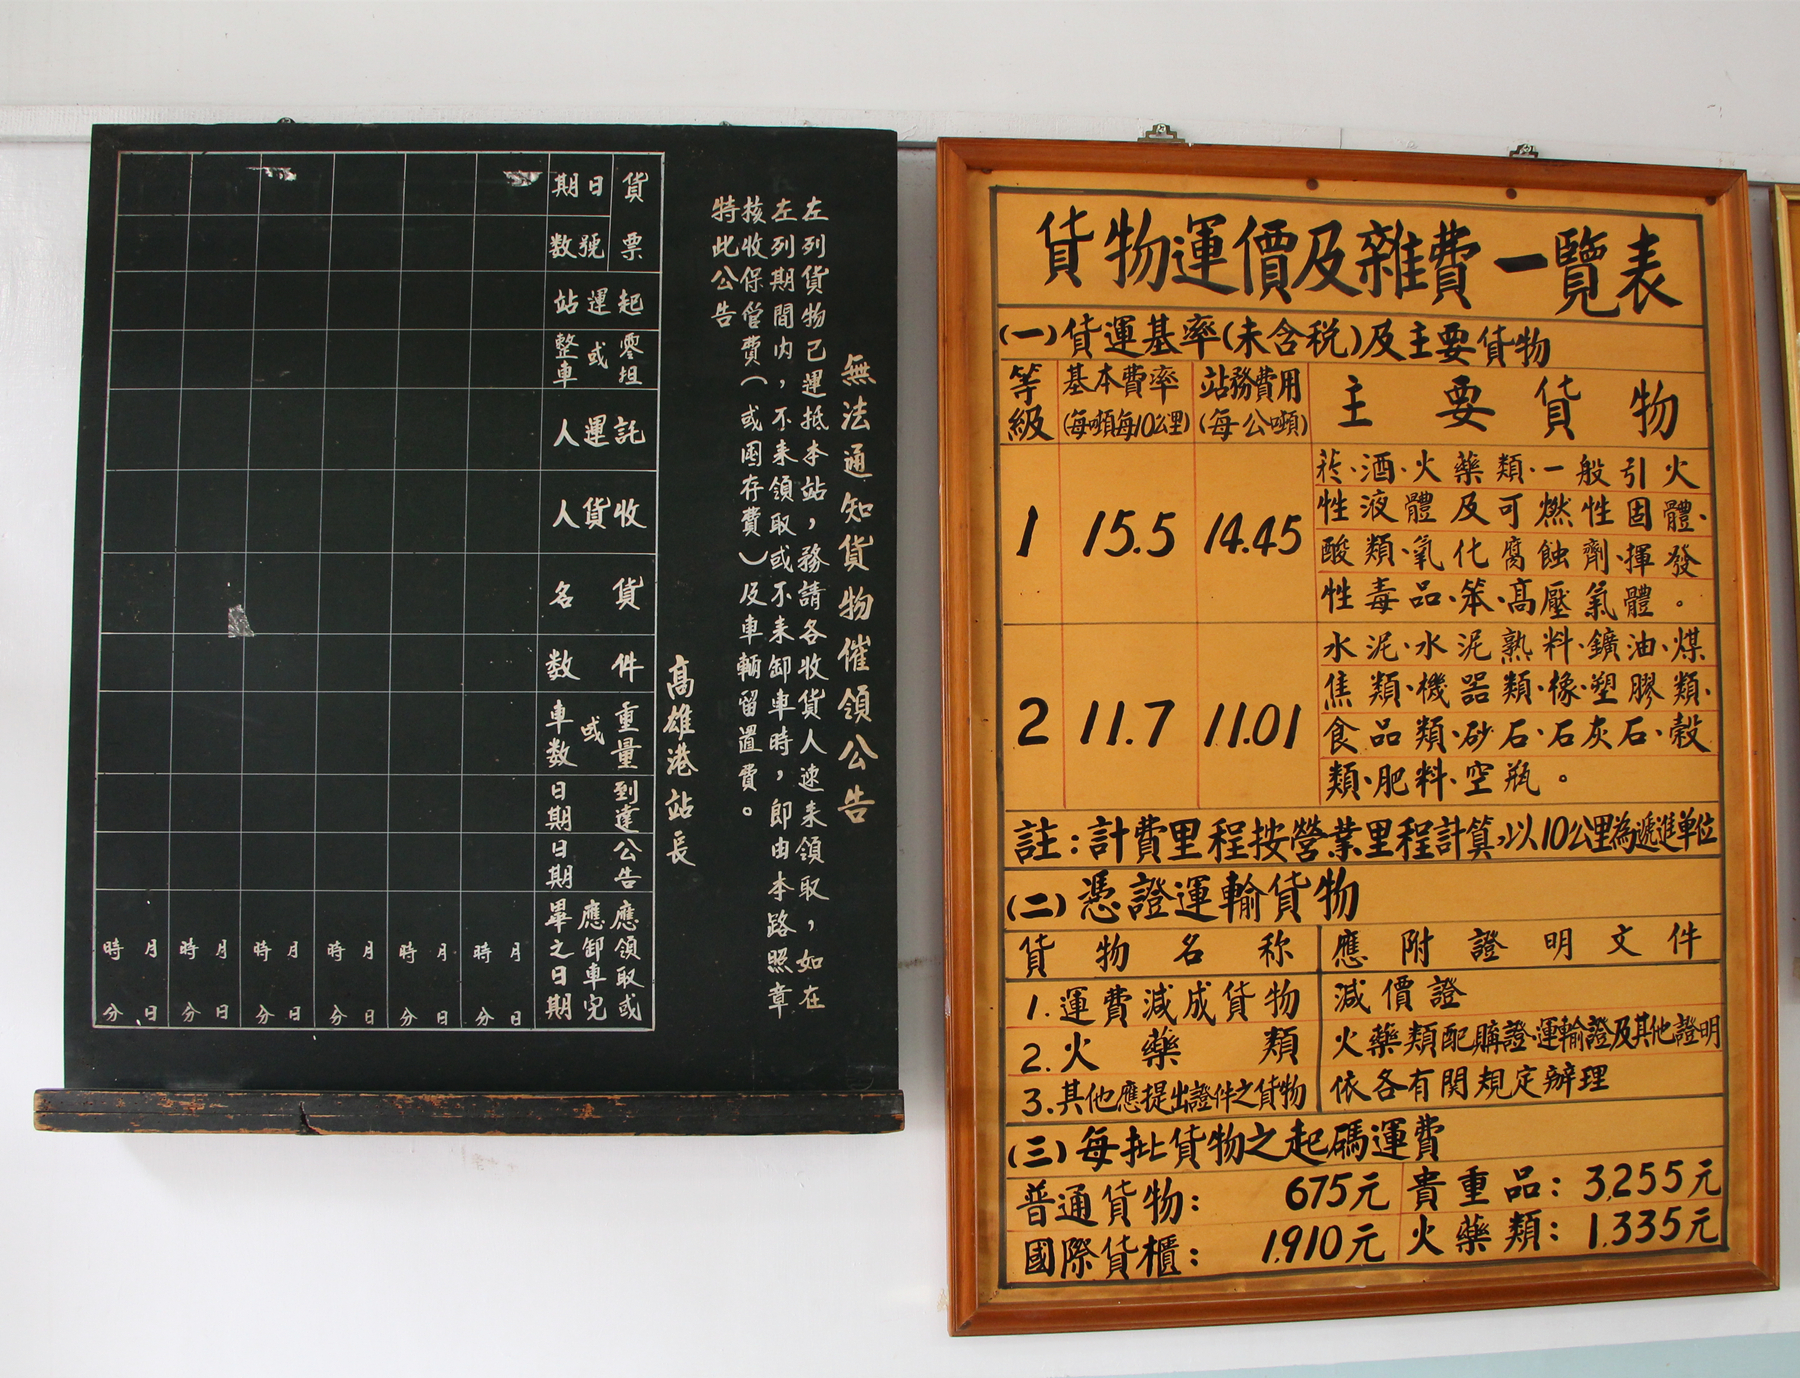 無法通知貨物催領公告
左列貨物已運抵本站，務請各收貨人速来領取，如在
左列期間内，不来領取或不来卸車時，即由本路照章
核收保管費（或囤存費）及車輛留置費。
特此公告
高雄港站長
貨票
日期
號数
起運站
零担或整車
託運人
收貨人
貨名
件数
重量或車数
到達日期
公告日期
應領取或應卸車完畢之日期
月日時分
月日時分
月日時分
月日時分
月日時分
月日時分
貨物運價及雜費一覽表
(一)貨運基率(未含税)及主要貨物
等級 基本費率(每噸每10公里) 站務費用(每公噸) 主要貨物
1 15.5 14.45
菸·酒·火藥類·一般引火
性液體及可燃性固體·
酸類·氧化腐蝕劑·揮發
性毒品·笨·高壓氣體。
2 11.7 11.01
水泥·水泥熟料·鑛油·煤
焦類·機器類·橡·塑膠類·
食品類·砂石·石灰石·穀
類·肥料·空瓶。
註:計費里程按營業里程計算,以10公里為遞進单位
(二)憑證運輸貨物
貨物名称 應附證明文件
1.運費減成貨物 減價證
2.火藥類 火藥類配購證·運輸證及其他證明
3.其他應提出證件之貨物 依各有関規定辦理
(三)每批貨物之起碼運費
普通貨物: 675元 貴重品: 3,255元
國際貨櫃: 1,910元 火藥類: 1,335元